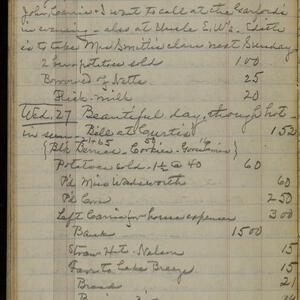 John, Carrie & I went to call at the Gaylords
in evening - also at Uncle E. W's. Edith
is to take Mrs Smith's class next Sunday
2 bu potatoes sold 100
Borrowed of Nette 25
Milk 20
Wed. 27 Beautiful day, though hot
in sun. Bill at Curtis' 152
Cookies
Potatoes sold - 1½ @ 40 60
Pd Miss Wadsworth 60
Pd Cora 250
Left Carrie for house expenses 300
Bank 1500
Straw Hat - Nelson 15
Fare to Lake Breeze 15
Bread